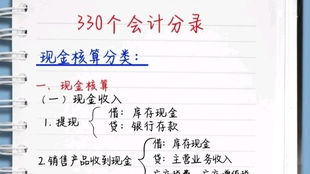 330个会计分录
现金核算分类：
一、现金核算
（一）现金收入
1.提现
借：库存现金
贷：银行存款
2.销售产品收到现金
借：库存现金
贷：主营业务收入